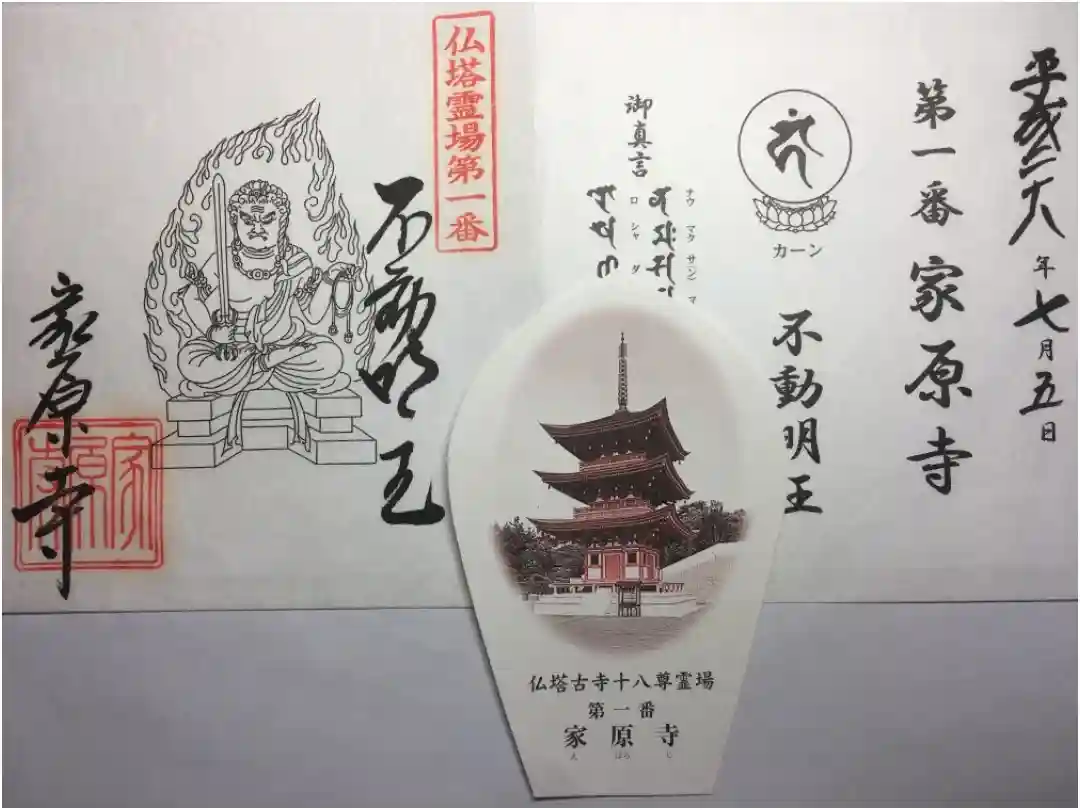 平成二六年七月五日
第一番 家原寺
カーン
不動明王
御真言
ナウ マク サンマ
ロ シャ ダ
仏塔霊場第一番
不動明王
家原寺
家原寺
仏塔古寺十八尊霊場
第一番
家原寺
え ばら じ